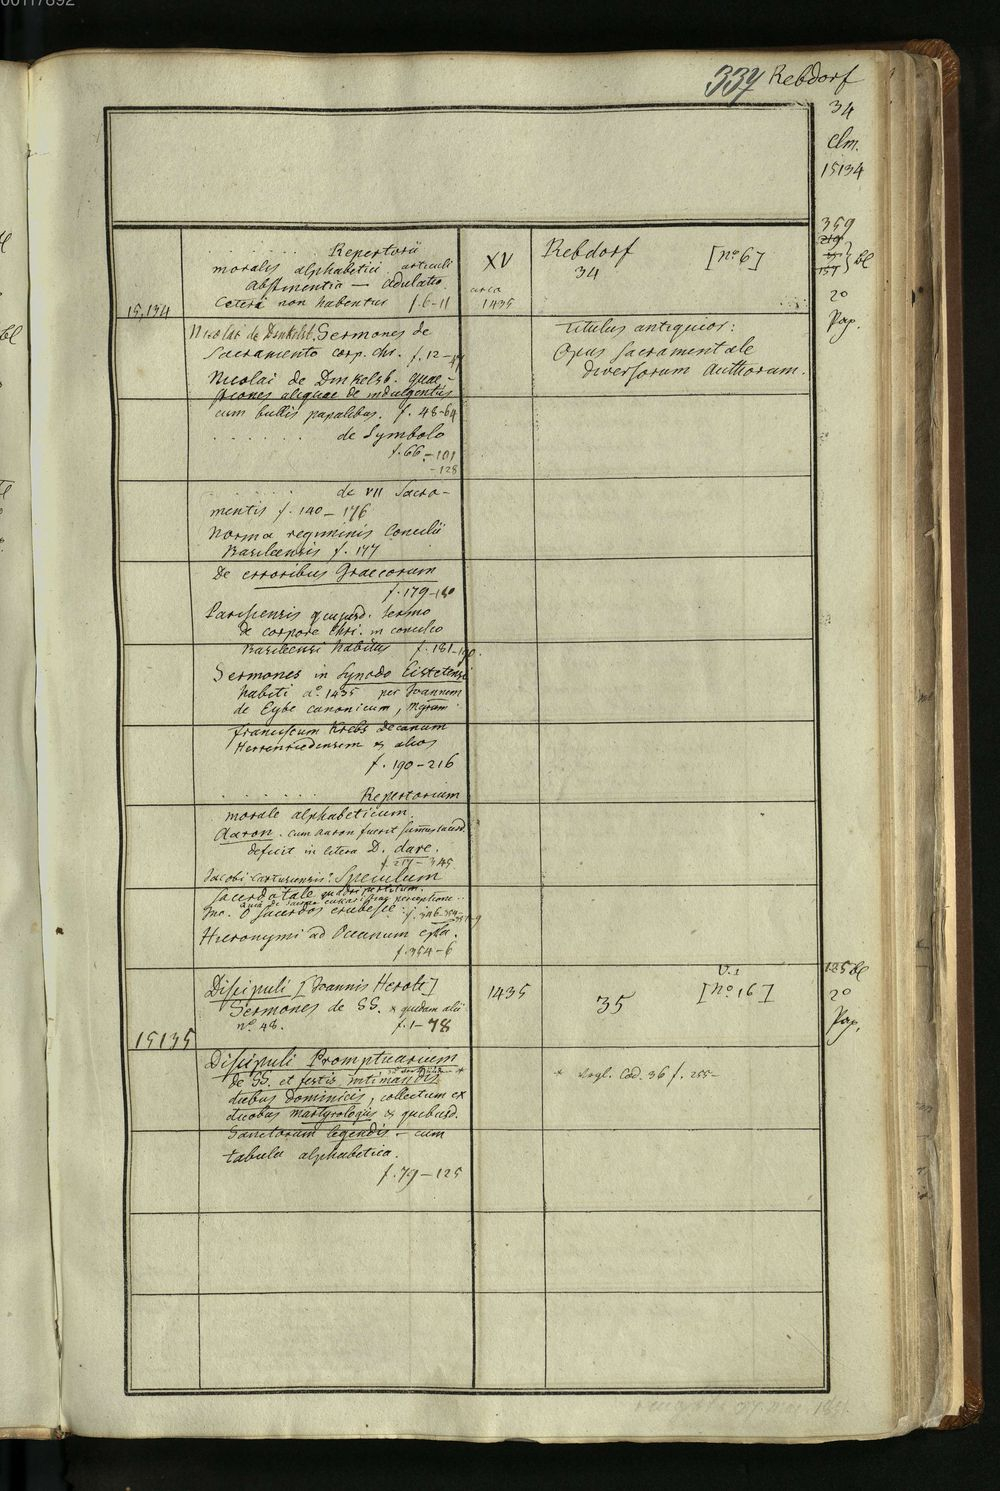 00117892
337 Rebdorf
34
Clm.
15134
. . . . . . . Repertorii
moralis alphabetici articuli
abstinentia — adulatio
Cetera non habentur f. 6-11
15,134
XV
circa
1435
Rebdorf
34
[no 6]
359
bl
2o
Pap.
Nicolai de Dinkelsb. Sermones de
Sacramento corp. chr. f. 12-47
Nicolai de Dinkelsb. quae-
stiones aliquae de indulgentiis
cum bullis papalibus. f. 48-64
Titulus antiquior:
Opus sacramentale
diversorum Authorum.
. . . . . . . de Symbolo
f. 66-101
-128
. . . . . . . de VII Sacra-
mentis f. 140-176
Norma regiminis Concilii
Basileensis f. 177
De erroribus Graecorum
f. 179-180
Parisiensis cujusd. Sermo
de corpore Chri. in concilio
Basileensi habitus f. 181-190.
Sermones in Synodo Eistetensi
habiti ao. 1435 per Joannem
de Eybe canonicum, Mgrum
Franciscum Krebs decanum
Herrenriedensem & alios
f. 190-216
. . . . . . . Repertorium
morale alphabeticum
Aaron. cum Aaron fuerit summus sacerd.
deficit in litera D. dare.
f. 217-345
Jacobi Cartusiensis: Speculum
sacerdotale quadripertitum.
Inc. O sacerdos erubesce
Hieronymi ad Oceanum epla.
f. 354-6
Discipuli [Joannis Herolt]
Sermones de SS. & quidam alii
no. 48. f. 1-78
15135
1435
35
V. 1
[no 16]
125 bl
2o
Pap.
Discipuli Promptuarium
de SS. et festis intimandis
diebus dominicis, collectum ex
duobus martyrologiis & quibusd.
Sanctorum legendis - cum
tabula alphabetica.
f. 79-125
* Vrgl. Cod. 36 f. 255-